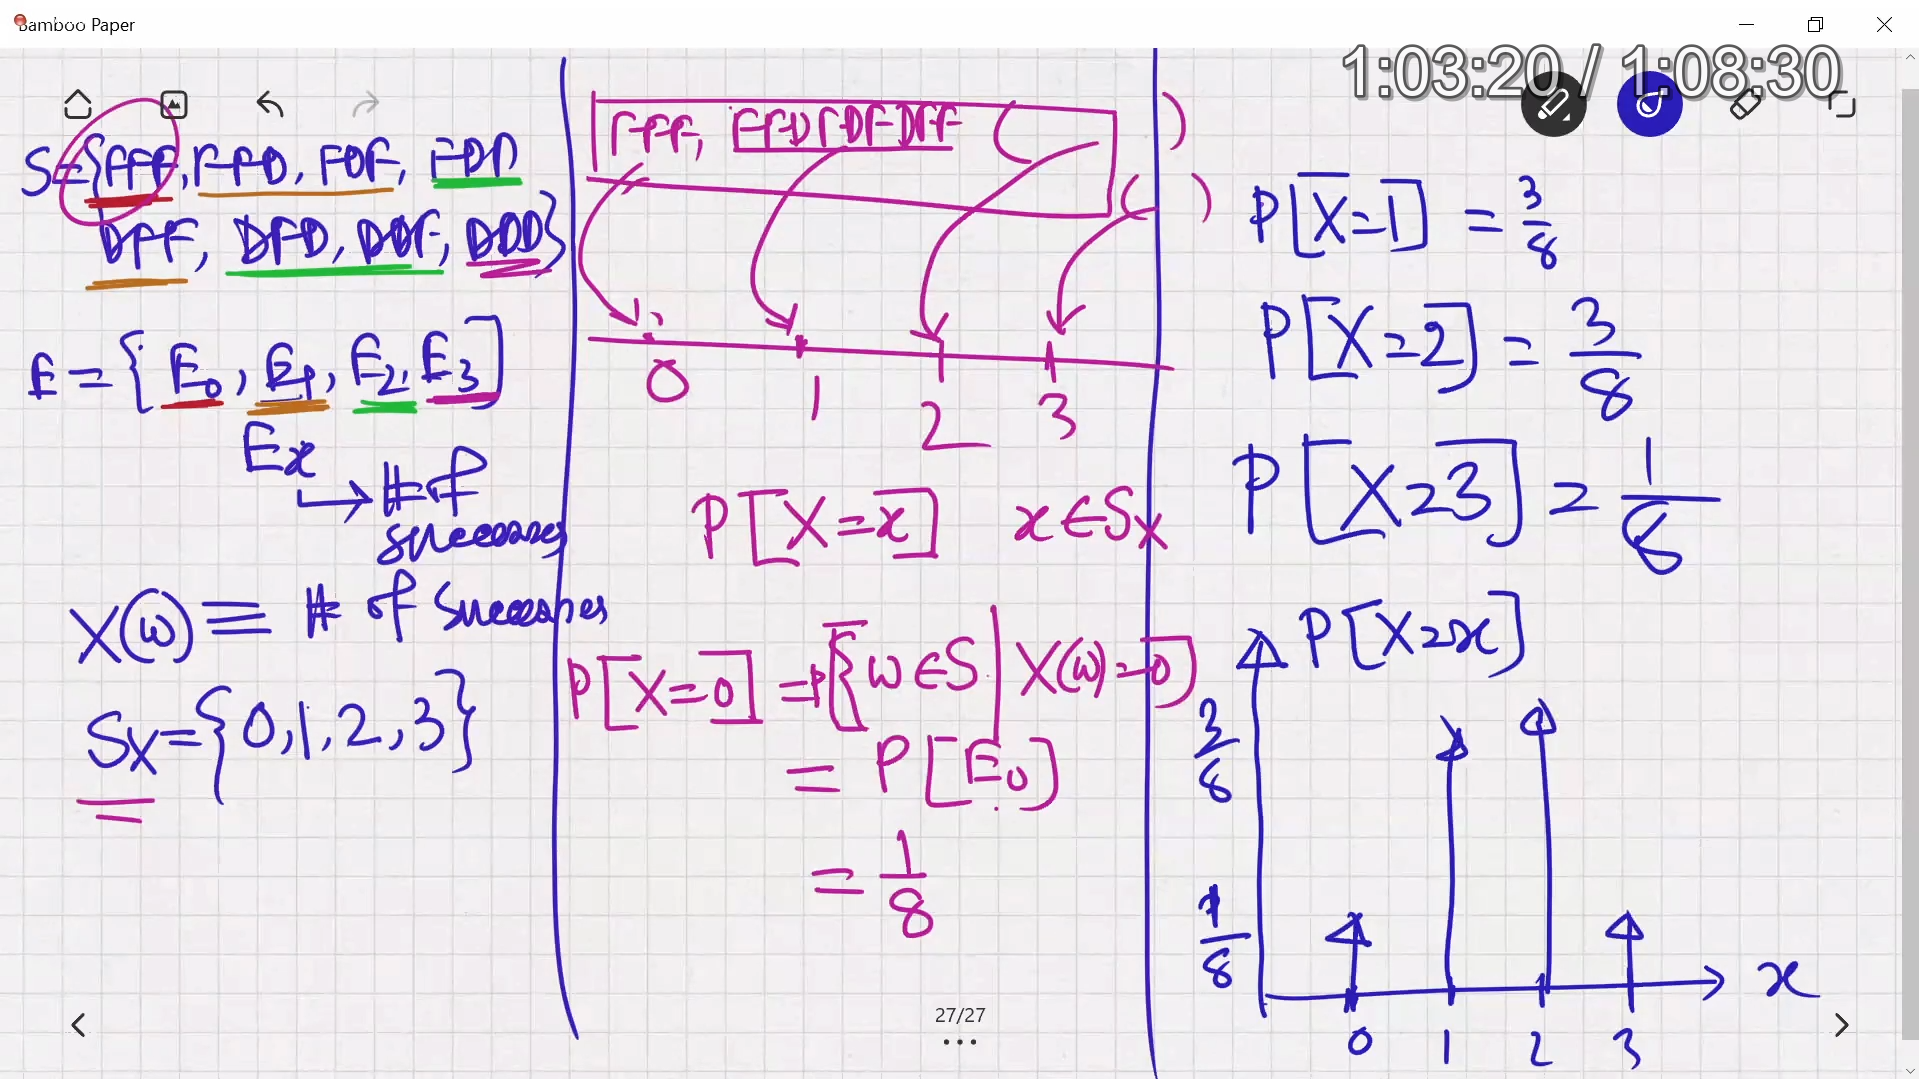 Bamboo Paper
1:03:20 / 1:08:30
S={FFF, FFD, FDF, FDD
DFF, DFD, DDF, DDD}
E = { E0, E1, E2, E3 ]
Ex
→ # of
successes
X(ω) ≡ # of Successes
Sx = {0,1,2,3}
FFF, FFD FDF DFF ( )
( )
0 1 2 3
P[X=x] x∈Sx
P[X=0] = P[{ω∈S | X(ω)=0}
= P[E0]
= 1/8
P[X=1] = 3/8
P[X=2] = 3/8
P[X=3] = 1/8
P[X=x]
3/8
1/8
x
0 1 2 3
27/27